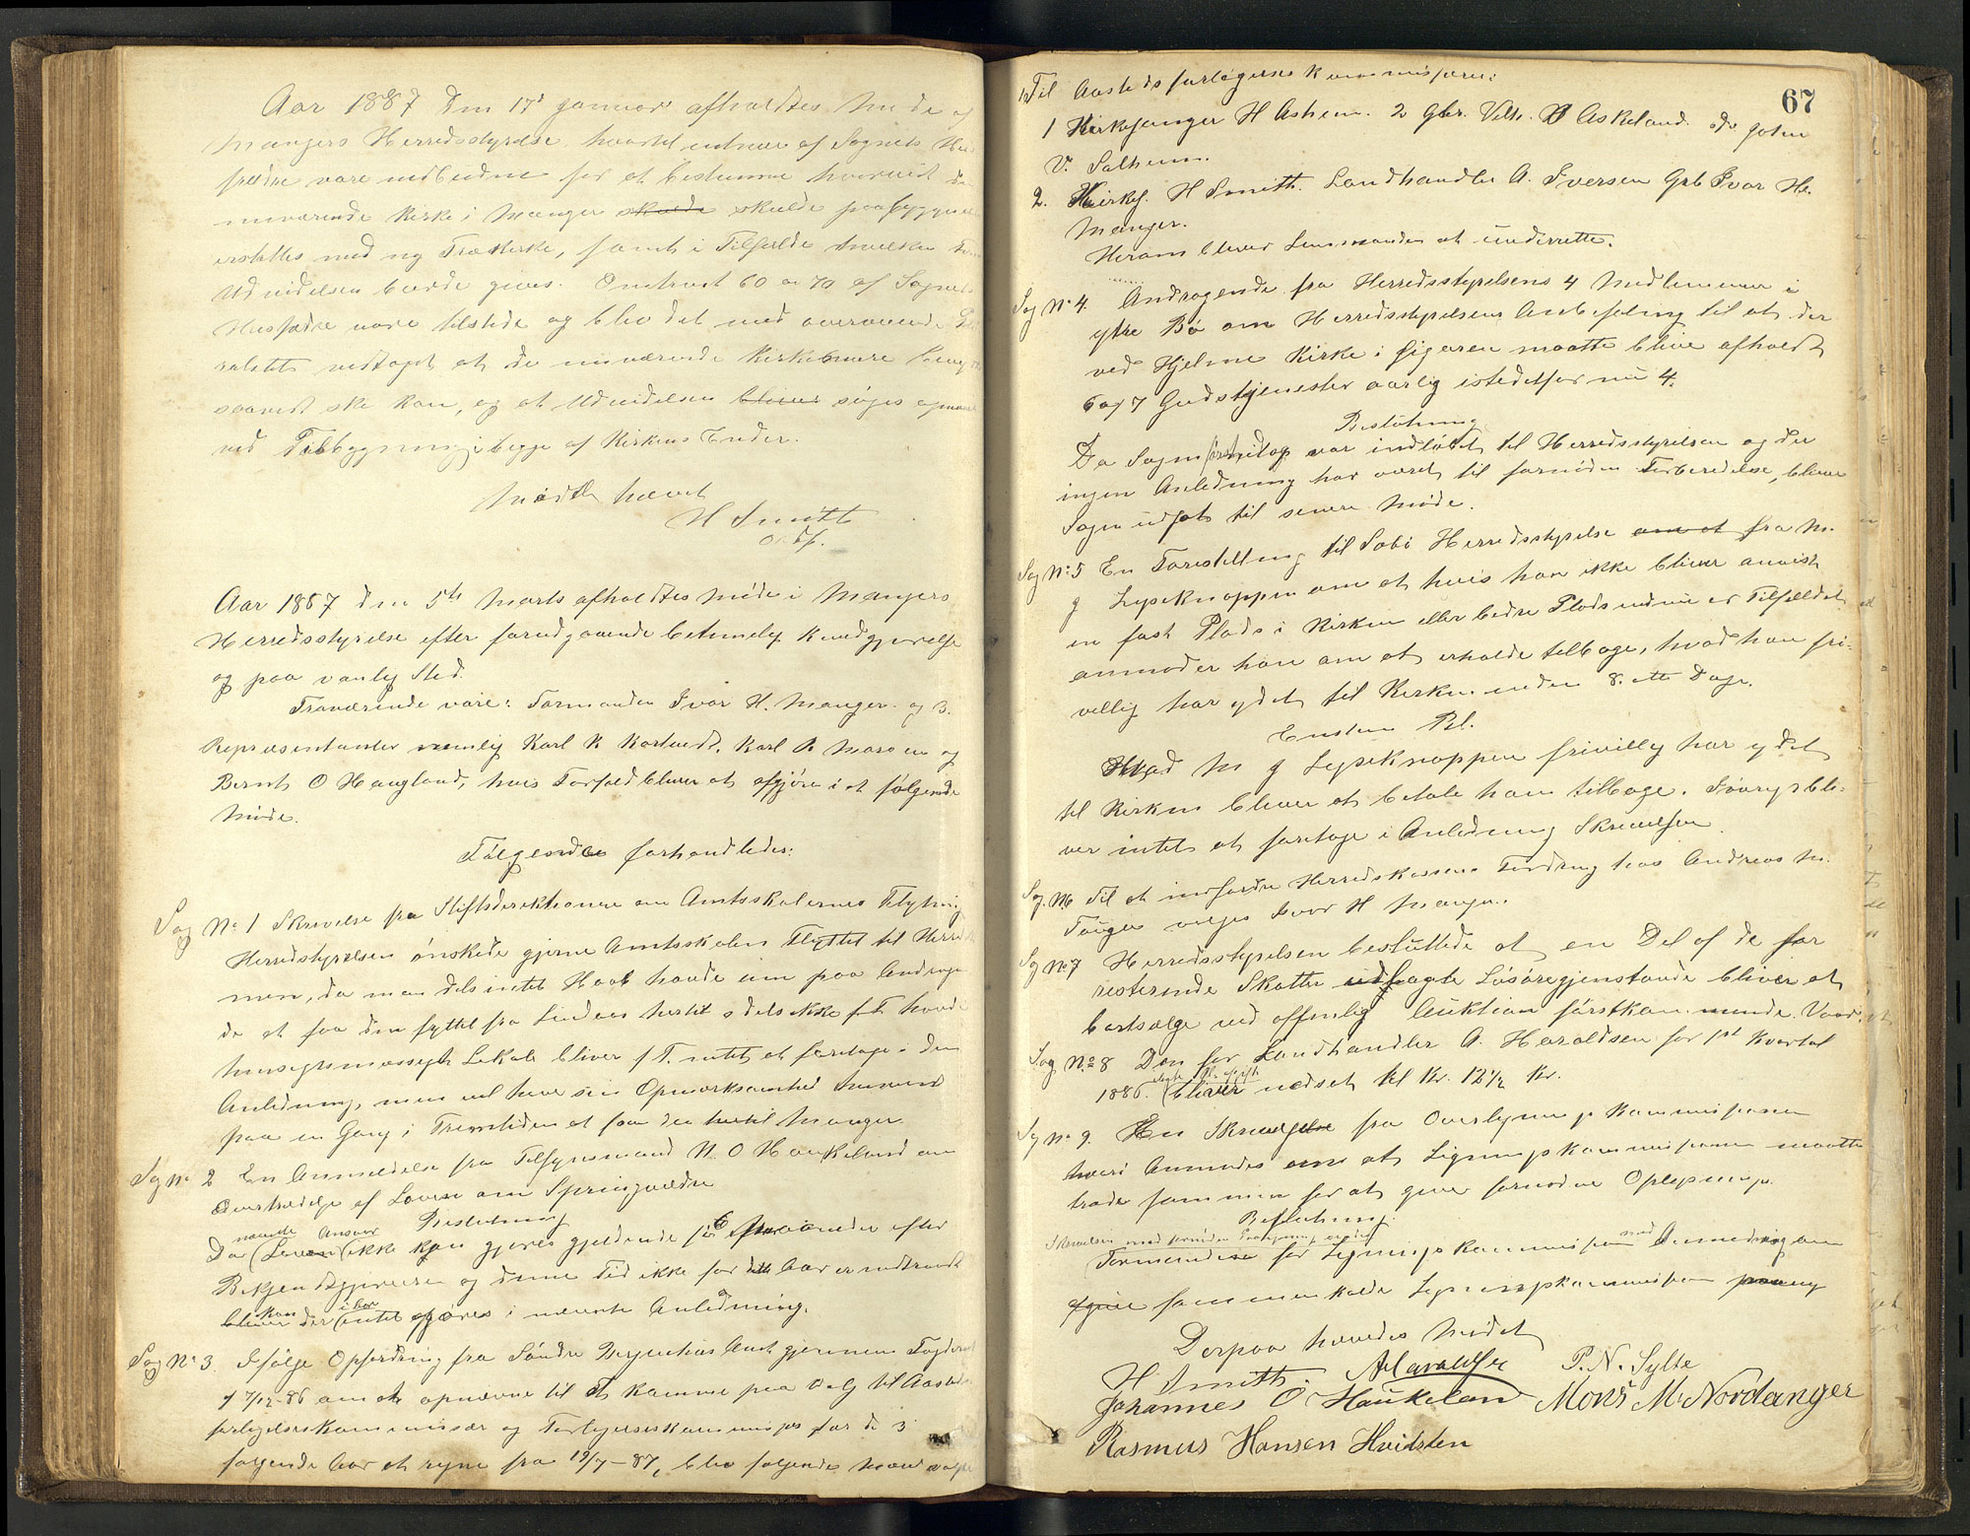 Aar 1887 den 17d Januar afholdtes Møde af
Mangers Herredsstyrelse, hvortil enhver af Sognets Hus
fædre vare indbudne for at bestemme hvorvidt den
nuværende Kirke i Manger skulde skulde paabygges eller
erstattes med ny Trækirke, samt i Tilfælde hvilken
Udvidelsen burde gives. Omtrent 60 a 70 af Sognets
Husfædre vare tilstede og blev det med overveiende
vedtaget at de nuværende Kirkemure
saavidt ske kan, og at Udvidelsen bliver søges opnaaet
ved Tilbygning i begge af Kirkens Ender.
Mødet hævet
H Smith
Ordf.
Aar 1887 den 5te Marts afholdtes Møde i Mangers
Herredsstyrelse efter forudgaaende betimelig Kundgjørelse
og paa vanlig Sted.
Fraværende vare: Formanden Ivar H. Manger og 3
Repræsentanter nemlig Karl K. Kartveit, Karl R. Marøen og
Bernt O Haugland, hvis Forfald bliver at afgjøre i et følgende
Møde.
Følgende forhandledes:
Sag No 1 Skrivelse fra Stiftsdirektionen om Amtsskolernes Flytning
Herredsstyrelsen ønskede gjerne Amtsskolen flyttet til Herredet
men, da man dels intet Haab havde om paa Andragen
de at faa den flyttet fra Lindaas hertil og dels ikke f. T. havde
hensigtsmæssigt Lokale bliver f. T. intet at foretage i den
Anledning, men vil have sin Opmærksomhed henvend
paa en Gang i Fremtiden at faa den hertil Manger
Sag No 2 En Anmeldelse fra Tilsynsmand N. O Haukeland om
Overtrædelse af Loven om Springvædre
Beslutning
nævnte Ansvar
Da Loven ikke kan gjøres gjældende før 6 Maaneder efter
Bekjendtgjørelsen og denne Tid ikke før dette Aar er udtraadt
kan i Aar
bliver der intet afgjøres i nævnte Anledning.
Sag No 3. Ifølge Opfordring fra Søndre Bergenhus Amt gjennem Fogden
af 7/12-86 om at opnævne til at komme paa Valg til Aasteds
forligelseskommissær og Forligelseskommissær for de 3
følgende Aar at regne fra 19/7-87, blev følgende Mænd valgte
67
Til Aastedsforligelseskommissærer:
1 Kirkesanger H Askem. 2 Gbr. Vilh. D Askeland. og Johan
V. Solheim.
2. Kirkes. H Smith. Landhandler A. Iversen Gbr Ivar H.
Manger.
Herom bliver Lensmanden at underrette.
Sag No 4. Andragende fra Herredsstyrelsens 4 Medlemmer i
ytre Bø om Herredsstyrelsens Anbefaling til at der
ved Hjelme Kirke i Ligeren maatte blive afholdt
6 og 7 Gudstjenester aarlig istedetfor nu 4.
Beslutning
Da Sagen var indløbet til Herredsstyrelsen og der
ingen Anledning har været til fornøden Forberedelse, bliver
Sagen udsat til senere Møde.
Sag No 5 En Forestilling til Sæbø Herredsstyrelse om at fra M.
J Lyseknappen om at hvis han ikke bliver anvist
en fast Plads i Kirken eller bedre Plads end nu er Tilfældet
anmoder han om at erholde tilbage, hvad han fri-
villig har ydet til Kirken inden 8. otte Dage.
Enstem Bl.
Hvad M J Lyseknappen frivillig har ydet
til Kirken bliver at betale ham tilbage. Iøvrigt bli-
ver intet at foretage i Anledning Skrivelsen
Sag. No 6 Til at indfordre Herredskassens Fordring hos Andreas M.
Tougen vælges Ivar H Manger.
Sag No 7 Herredsstyrelsen besluttede at en Del af de for
resterende Skatter udsagte Løsøregjenstande bliver at
bortsælge ved offentlig Auktion førstkommende Vaar.
Sag No 8 Den for Landhandler A. Haraldsen for 1st Kvartal
1886. bliver nedsat til Kr. 12 1/2 Kr.
Sag No 9. En Skrivelse fra Overligningskommissionen
hvori Anmodes om at Ligningskommissionen maatte
træde sammen for at give fornødne Oplysninger.
Beslutning.
Formanden for Ligningskommissionen med Anmodning om
at give sammenkalde Ligningskommissionen
Derpaa hævedes Mødet
H Smith. A Haraldsen P. N. Sylte
Johannes O Haukeland Mons M. Nordanger
Rasmus Hansen Hvidsten